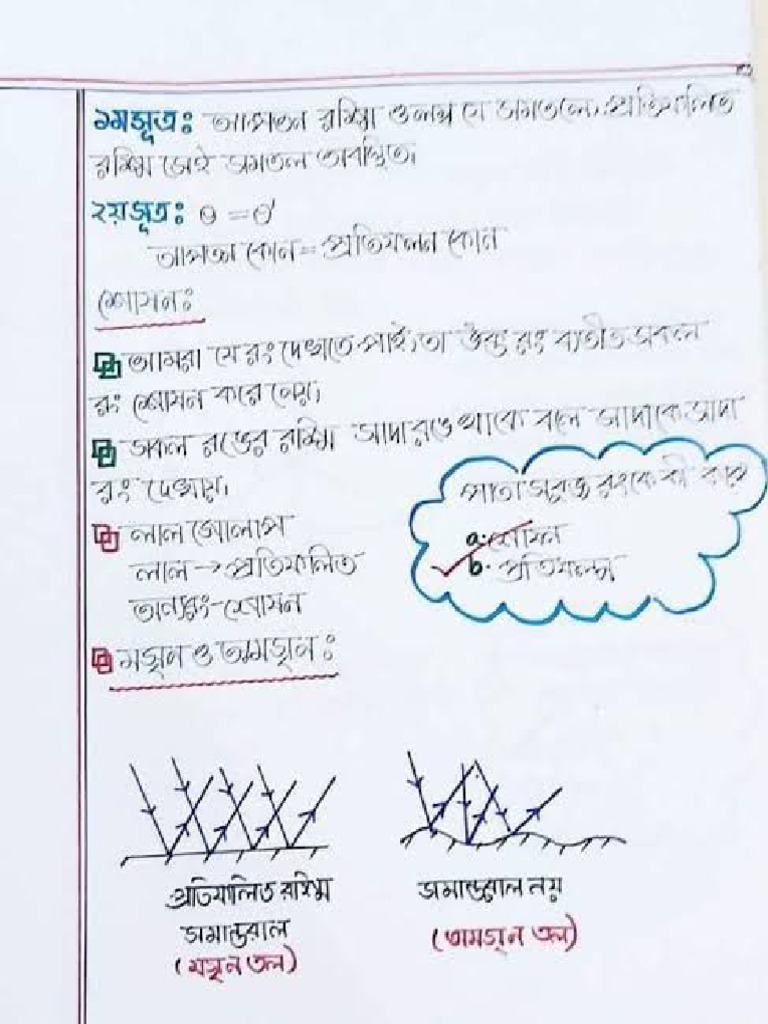 ১মসূত্র: আপতন রশ্মি ও লম্ব যে সমতলে, প্রতিফলিত
রশ্মি সেই সমতল অবস্থিত।
২য়সূত্র: θ = θ'
আপতন কোন = প্রতিফলন কোন
শোষন:
আমরা যে রং দেখতে পাই, তা উক্ত রং ব্যতীত সকল
রং শোষন করে নেয়।
সকল রঙের রশ্মি সাদা রঙে থাকে বলে সাদাকে সাদা
রং দেখায়।
পাতা সবুজ রংকে কী করে
লাল গোলাপ
a. শোষন
লাল → প্রতিফলিত
b. প্রতিফলন
অন্যরং - শোষন
মসৃন ও অমসৃন:
প্রতিফলিত রশ্মি
সমান্তরাল
(মসৃন তল)
সমান্তরাল নয়
(অমসৃন তল)